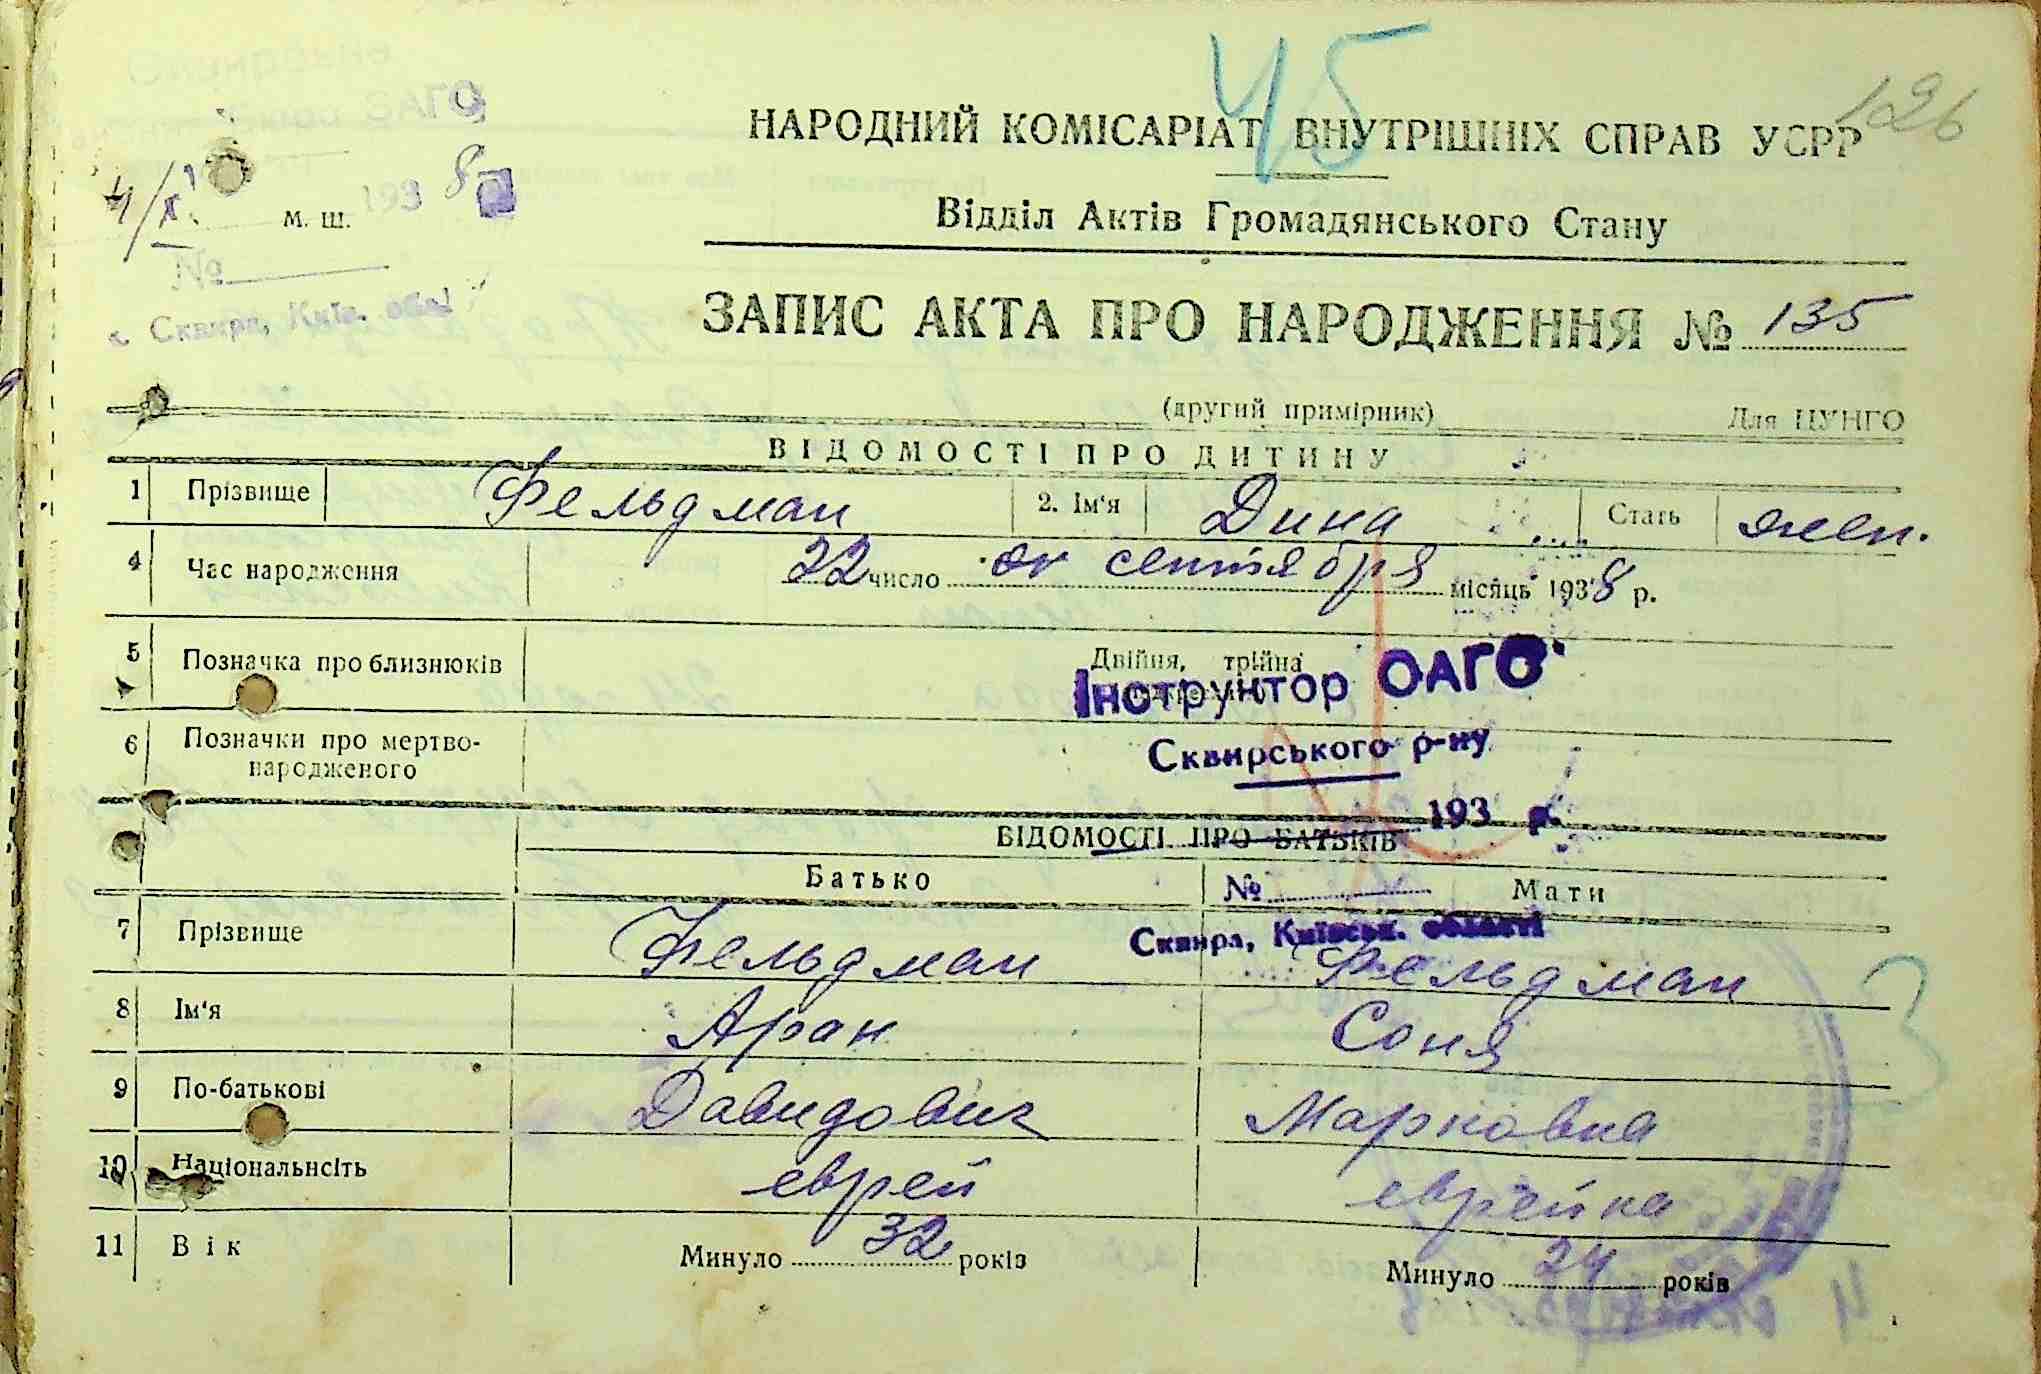 45
126
НАРОДНИЙ КОМІСАРІАТ ВНУТРІШНІХ СПРАВ УСРР
Відділ Актів Громадянського Стану
4/X 1938
м. ш.
№
Сквира, Київ. обл
ЗАПИС АКТА ПРО НАРОДЖЕННЯ № 135
(другий примірник) Для ЦУНГО
ВІДОМОСТІ ПРО ДИТИНУ
1 Прізвище Фельдман 2. Ім'я Дина Стать жен.
4 Час народження 22 число сентября місяць 1938 р.
5 Позначка про близнюків Двійня, трійна
Інструктор ОАГС
6 Позначки про мертво-
народженого
Сквирського р-ну
193 р.
ВІДОМОСТІ ПРО БАТЬКІВ
Батько № Мати
Сквира, Київськ. області
7 Прізвище Фельдман Фельдман
8 Ім'я Аран Соня
9 По-батькові Давидович Марковна
10 Національнсіть еврей еврейка
11 Вік Минуло 32 років Минуло 24 років